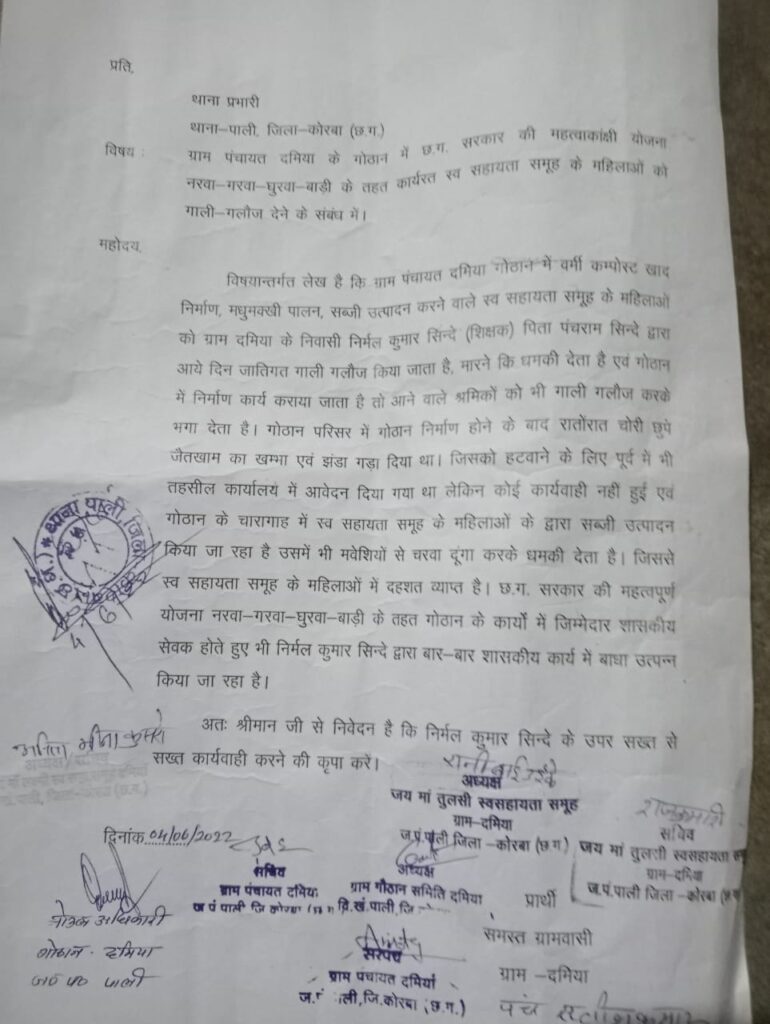 प्रति,
थाना प्रभारी
थाना–पाली, जिला–कोरबा (छ.ग.)
विषय : ग्राम पंचायत दमिया के गोठान में छ.ग. सरकार की महत्वाकांक्षी योजना
नरवा–गरवा–घुरवा–बाड़ी के तहत कार्यरत स्व सहायता समूह के महिलाओं को
गाली–गलौज देने के संबंध में।
महोदय,
विषयान्तर्गत लेख है कि ग्राम पंचायत दमिया गोठान में वर्मी कम्पोस्ट खाद
निर्माण, मधुमक्खी पालन, सब्जी उत्पादन करने वाले स्व सहायता समूह के महिलाओं
को ग्राम दमिया के निवासी निर्मल कुमार सिन्दे (शिक्षक) पिता पंचराम सिन्दे द्वारा
आये दिन जातिगत गाली गलौज किया जाता है, मारने कि धमकी देता है एवं गोठान
में निर्माण कार्य कराया जाता है तो आने वाले श्रमिकों को भी गाली गलौज करके
भगा देता है। गोठान परिसर में गोठान निर्माण होने के बाद रातोंरात चोरी छुपे
जैतखाम का खम्भा एवं झंडा गड़ा दिया था। जिसको हटवाने के लिए पूर्व में भी
तहसील कार्यालय में आवेदन दिया गया था लेकिन कोई कार्यवाही नहीं हुई एवं
गोठान के चारागाह में स्व सहायता समूह के महिलाओं के द्वारा सब्जी उत्पादन
किया जा रहा है उसमें भी मवेशियों से चरवा दूंगा करके धमकी देता है। जिससे
स्व सहायता समूह के महिलाओं में दहशत व्याप्त है। छ.ग. सरकार की महत्वपूर्ण
योजना नरवा–गरवा–घुरवा–बाड़ी के तहत गोठान के कार्यो में जिम्मेदार शासकीय
सेवक होते हुए भी निर्मल कुमार सिन्दे द्वारा बार–बार शासकीय कार्य में बाधा उत्पन्न
किया जा रहा है।
थाना पाली, जिला
(छ.ग.)
अतः श्रीमान जी से निवेदन है कि निर्मल कुमार सिन्दे के उपर सख्त से
सख्त कार्यवाही करने की कृपा करें।
अध्यक्ष
जय मां तुलसी स्वसहायता समूह
ग्राम–दमिया
ज.पं.पाली जिला –कोरबा (छ.ग.)
राजकुमारी
सचिव
जय मां तुलसी स्वसहायता
ग्राम–दमिया
ज.पं.पाली जिला –कोरबा (छ.ग.
दिनांक 04/06/2022
सचिव
ग्राम पंचायत दमिया
अध्यक्ष
ग्राम गौठान समिति दमिया
वि.खं.पाली,जि
प्रार्थी
समस्त ग्रामवासी
ग्राम –दमिया
नोडल अधिकारी
गोठान - दमिया
ज० प० पाली
सरपंच
ग्राम पंचायत दमिया
ज.पं. पाली,जि.कोरबा (छ.ग.)
पंच